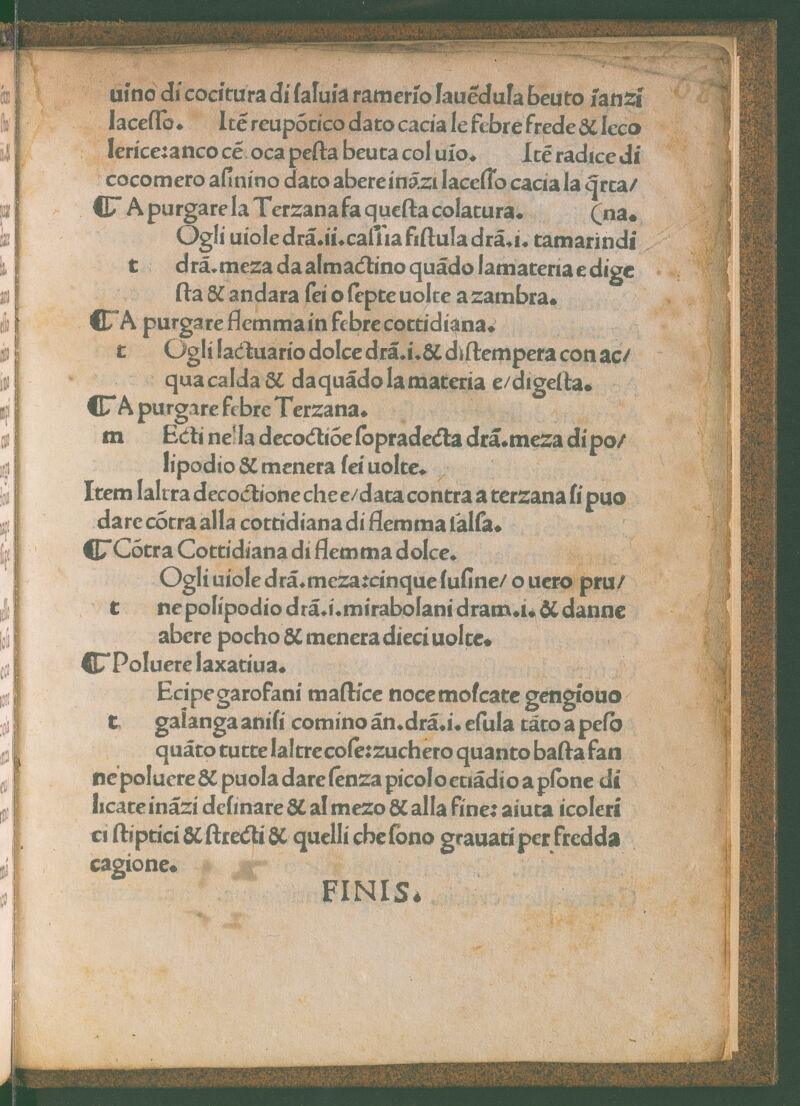 uino di cocitura di ſaluia ramerio lauēdula beuto ſanzi
laceſſo. Itē reupōtico dato cacia le febre frede & leco
lerice:anco cē. oca peſta beuta col uīo. Itē radice di
cocomero aſinino dato abere ināzi laceſſo cacia la q̄rta/
⸿ A purgare la Terzana fa queſta colatura. (na.
Ogli uiole drā.ii.caſſia fiſtula drā.i. tamarindi
t drā.meza da almactino quādo lamateria e dige
ſta & andara ſei o ſepte uolte a zambra.
⸿ A purgare flemma in febre cottidiana.
t Ogli lactuario dolce drā.i.& diſtempera con ac/
qua calda & da quādo la materia e/digeſta.
⸿ A purgare febre Terzana.
m Ecti nella decoctiōe ſopradecta drā.meza di po/
lipodio & menera ſei uolte.
Item laltra decoctione che e/data contra a terzana ſi puo
dare cōtra alla cottidiana di flemma ſalſa.
⸿ Cōtra Cottidiana di flemma dolce.
Ogli uiole drā.meza:cinque ſuſine/ o uero pru/
t ne polipodio drā.i.mirabolani dram.i. & danne
abere pocho & menera dieci uolte.
⸿ Poluere laxatiua.
Ecipe garofani maſtice noce moſcate gengiouo
t galanga aniſi comino ān.drā.i. eſula tāto a peſo
quāto tutte laltre coſe:zuchero quanto baſta fan
ne poluere & puola dare ſenza picolo etiādio a pſone di
licate ināzi deſinare & al mezo & alla fine: aiuta icoleri
ci ſtiptici & ſtrecti & quelli che ſono grauati per fredda
cagione.
FINIS.